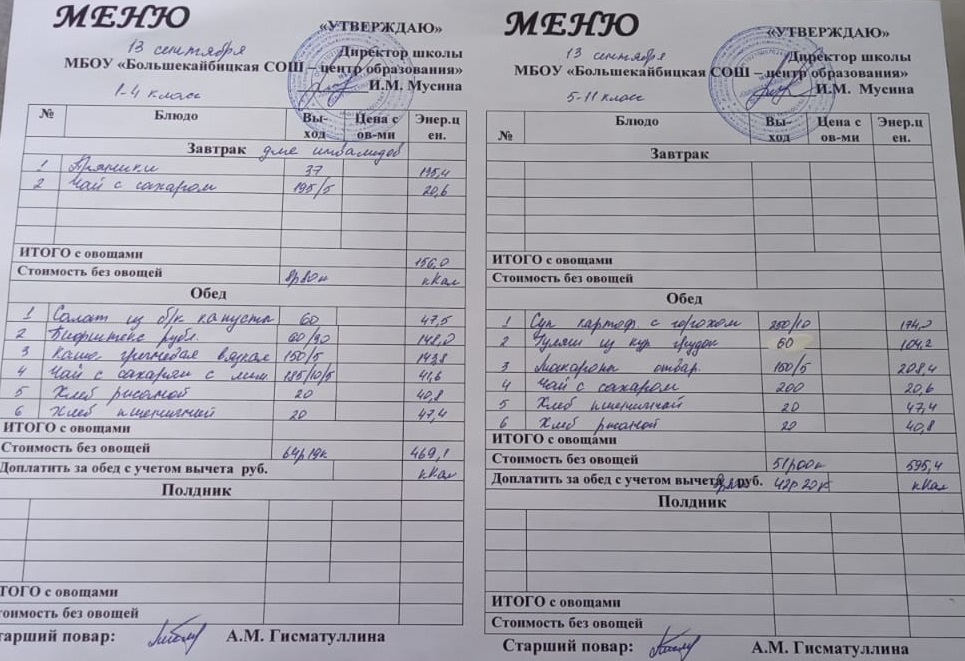 МЕНЮ
«УТВЕРЖДАЮ»
13 сентября
Директор школы
МБОУ «Большекайбицкая СОШ – центр образования»
И.М. Мусина
1-4 класс
№ Блюдо Вы-ход Цена с ов-ми Энер.ц ен.
Завтрак для инвалидов
1 Пряники 37 135,4
2 Чай с сахаром 195/5 20,6
ИТОГО с овощами 156,0
Стоимость без овощей 8р80к кКал
Обед
1 Салат из б/к капусты 60 47,5
2 Бифштекс рубл. 60/30 148,0
3 Каша гречневая вязкая 150/5 143,8
4 Чай с сахаром с лим. 185/10/5 41,6
5 Хлеб ржаной 20 40,8
6 Хлеб пшеничный 20 47,4
ИТОГО с овощами
Стоимость без овощей 64р19к 469,1
Доплатить за обед с учетом вычета руб. кКал
Полдник
ТОГО с овощами
тоимость без овощей
тарший повар: А.М. Гисматуллина
МЕНЮ
«УТВЕРЖДАЮ»
13 сентября
Директор школы
МБОУ «Большекайбицкая СОШ – центр образования»
И.М. Мусина
5-11 класс
№ Блюдо Вы-ход Цена с ов-ми Энер.ц ен.
Завтрак
ИТОГО с овощами
Стоимость без овощей
Обед
1 Суп картоф. с горохом 250/10 174,0
2 Гуляш из кур грудок 60 104,2
3 Макароны отвар. 150/5 208,4
4 Чай с сахаром 200 20,6
5 Хлеб пшеничный 20 47,4
6 Хлеб ржаной 20 40,8
ИТОГО с овощами
Стоимость без овощей 51р00к 595,4
Доплатить за обед с учетом вычета руб. 42р20к кКал
Полдник
ИТОГО с овощами
Стоимость без овощей
Старший повар: А.М. Гисматуллина